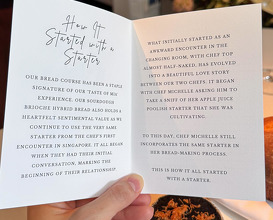 How It
Started with a
Starter
OUR BREAD COURSE HAS BEEN A STAPLE
SIGNATURE OF OUR TASTE OF MISE
EXPERIENCE. OUR SOURDOUGH
BRIOCHE HYBRID BREAD ALSO HOLDS A
HEARTFELT SENTIMENTAL VALUE AS WE
CONTINUE TO USE THE VERY SAME
STARTER FROM THE CHEF'S FIRST
ENCOUNTER IN SINGAPORE. IT ALL BEGAN
WHEN THEY HAD THEIR INITIAL
CONVERSATION, MARKING THE
BEGINNING OF THEIR RELATIONSHIP
WHAT INITIALLY STARTED AS AN
AWKWARD ENCOUNTER IN THE
CHANGING ROOM, WITH CHEF TOP
ALMOST HALF-NAKED, HAS EVOLVED
INTO A BEAUTIFUL LOVE STORY
BETWEEN OUR TWO CHEFS. IT BEGAN
WITH CHEF MICHELLE ASKING HIM TO
TAKE A SNIFF OF HER APPLE JUICE
POOLISH STARTER THAT SHE WAS
CULTIVATING.
TO THIS DAY, CHEF MICHELLE STILL
INCORPORATES THE SAME STARTER IN
HER BREAD-MAKING PROCESS.
THIS IS HOW IT ALL STARTED
WITH A STARTER.